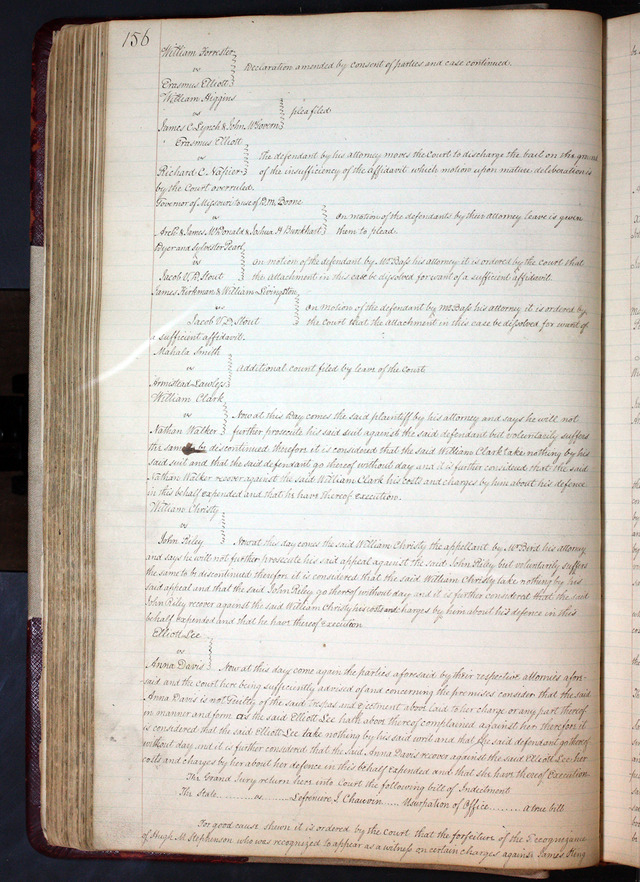 156
William Forrester
vs
Declaration amended by consent of parties and case continued.
Erasmus Elliott
William Higgins
vs
plea filed
James C. Lynch & John McGovern
Erasmus Elliott
vs
the defendant by his attorney moves the Court to discharge the bail on the ground
Richard C. Napier
of the insufficiency of the Affidavit which motion upon mature deliberation is
by the Court overruled.
Governor of Missouri to use of D.M. Boone
vs
on motion of the defendants by their attorney leave is given
& James McDonald & Joshua H Burckhart
them to plead.
and Sylvester Pearl
vs
on motion of the defendant by Mr Bass his attorney it is ordered by the court that
Jacob V.D. Stout
the attachment in this case be dissolved for want of a sufficient affidavit.
James Kerkman & William Livingston
vs
on motion of the defendant by Mr Bass his attorney it is ordered by
Jacob V.D. Stout
the court that the attachment in this case be dissolved for want of
a sufficient affidavit.
Mahala Smith
vs
additional count filed by leave of the Court
Armistead Lawless
William Clark
vs
Now at this Day comes the said plaintiff by his attorney and says he will not
Nathan Walker
further prosecute his said suit against the said defendant but voluntarily suffers
the same to be discontinued therefore it is considered that the said William Clark take nothing by his
said suit and that the said defendant go thereof without day and it is further considered that the said
Nathan Walker recover against the said William Clark his costs and charges by him about his defence
in this behalf expended and that he have thereof execution.
William Christy
vs
John Riley
Now at this day comes the said William Christy the appellant by Mr Bird his attorney
and says he will not further prosecute his said appeal against the said John Riley but voluntarily suffers
the same to be discontinued therefore it is considered that the said William Christy take nothing by his
said appeal and that the said John Riley go thereof without day and it is further considered that the said
John Riley recover against the said William Christy his costs and charges by him about his defence in this
behalf expended and that he have thereof execution
Elliott Lee
vs
Anna Davis
Now at this day come again the parties aforesaid by their respective attornies afore-
said and the court here being sufficiently advised of and concerning the premises consider that the said
Anna Davis is not Guilty of the said trespass and ejectment above laid to her charge or any part thereof
in manner and form as the said Elliott Lee hath above thereof complained against her therefore it
is considered that the said Elliott Lee take nothing by his said writ and that the said defendant go thereof
without day and it is further considered that the said Anna Davis recover against the said Elliott Lee her
costs and charges by her about her defence in this behalf expended and that she have thereof Execution
The Grand Jury return here into Court the following bill of Indictment
The State ........ vs ........ Lefreniere J. Chauvin ..... Usurpation of Office ......... a true bill
For good cause shewn it is ordered by the court that the forfeiture of the Recognizance
of Hugh M. Stephenson who was recognized to appear as a witness on certain charges against James King